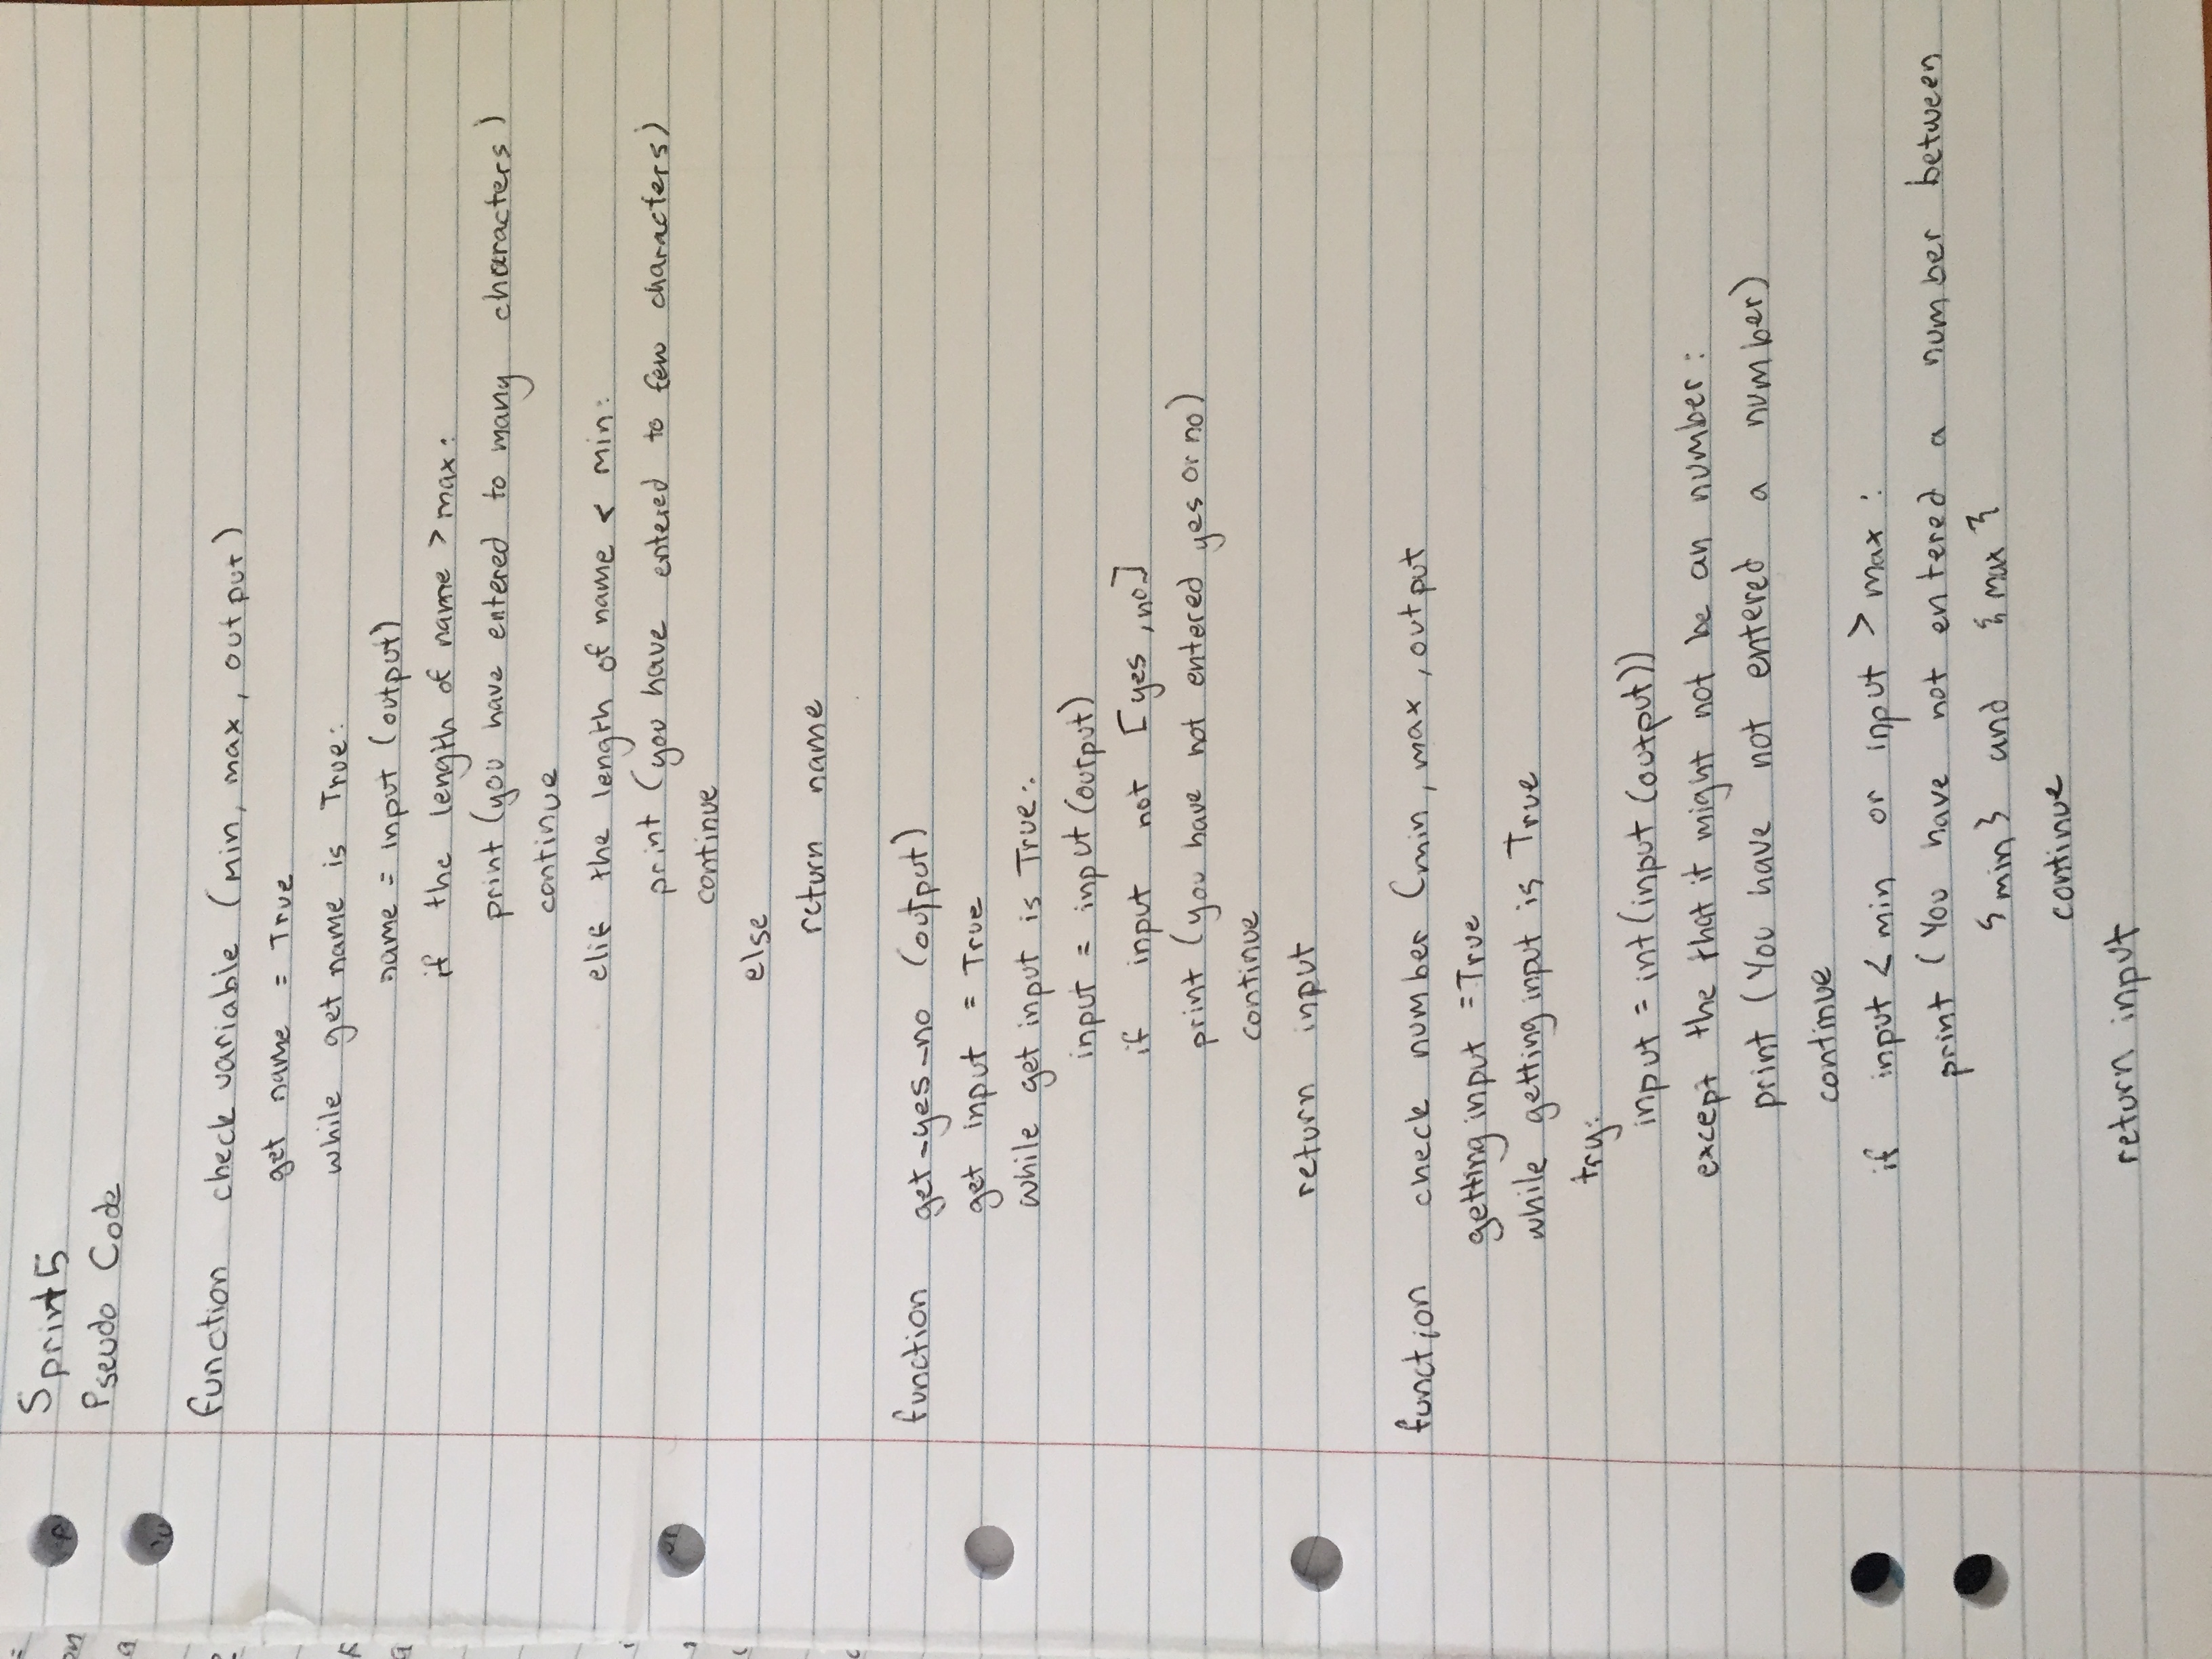 Sprint 5
Pseudo Code
function check variable (min, max, output)
get name = True
while get name is True:
name = input (output)
if the length of name > max:
print (you have entered to many characters)
continue
elif the length of name < min:
print (you have entered to few characters)
continue
else
return name
function get-yes-no (output)
get input = True
while get input is True:
input = input (output)
if input not [yes, no]
print (you have not entered yes or no)
continue
return input
function check number (min, max, output
getting input = True
while getting input is True
try:
input = int (input (output))
except the that it might not be an number:
print (You have not entered a number)
continue
if input < min or input > max:
print (You have not entered a number between
{min} and {max}
continue
return input